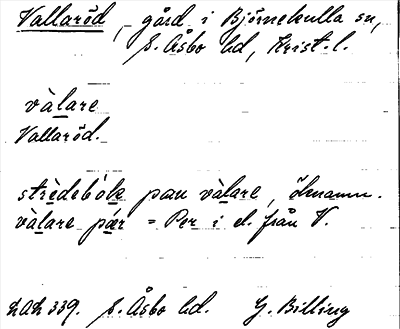 Vallaröd, gård i Björnekulla sn,
S. Åsbo hd, Krist. l.
vàlare
Vallaröd.
strèdebòk pau vàlare, öknamn.
vàlare pær = Per i el. från V.
LAL 339. S. Åsbo hd. G. Billing